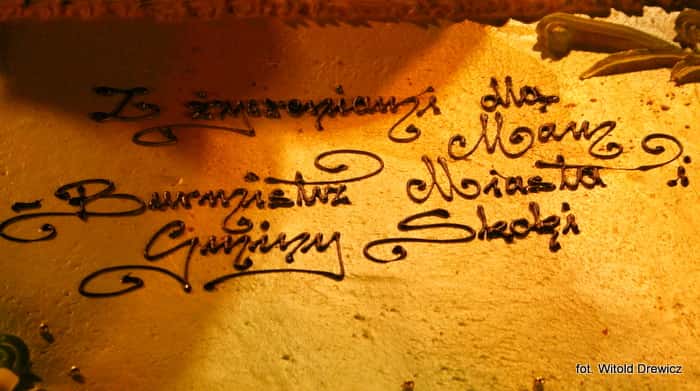 Z życzeniami dla
Mau
- Burmistrz Miasta i
Gminy Skoki
fot. Witold Drewicz